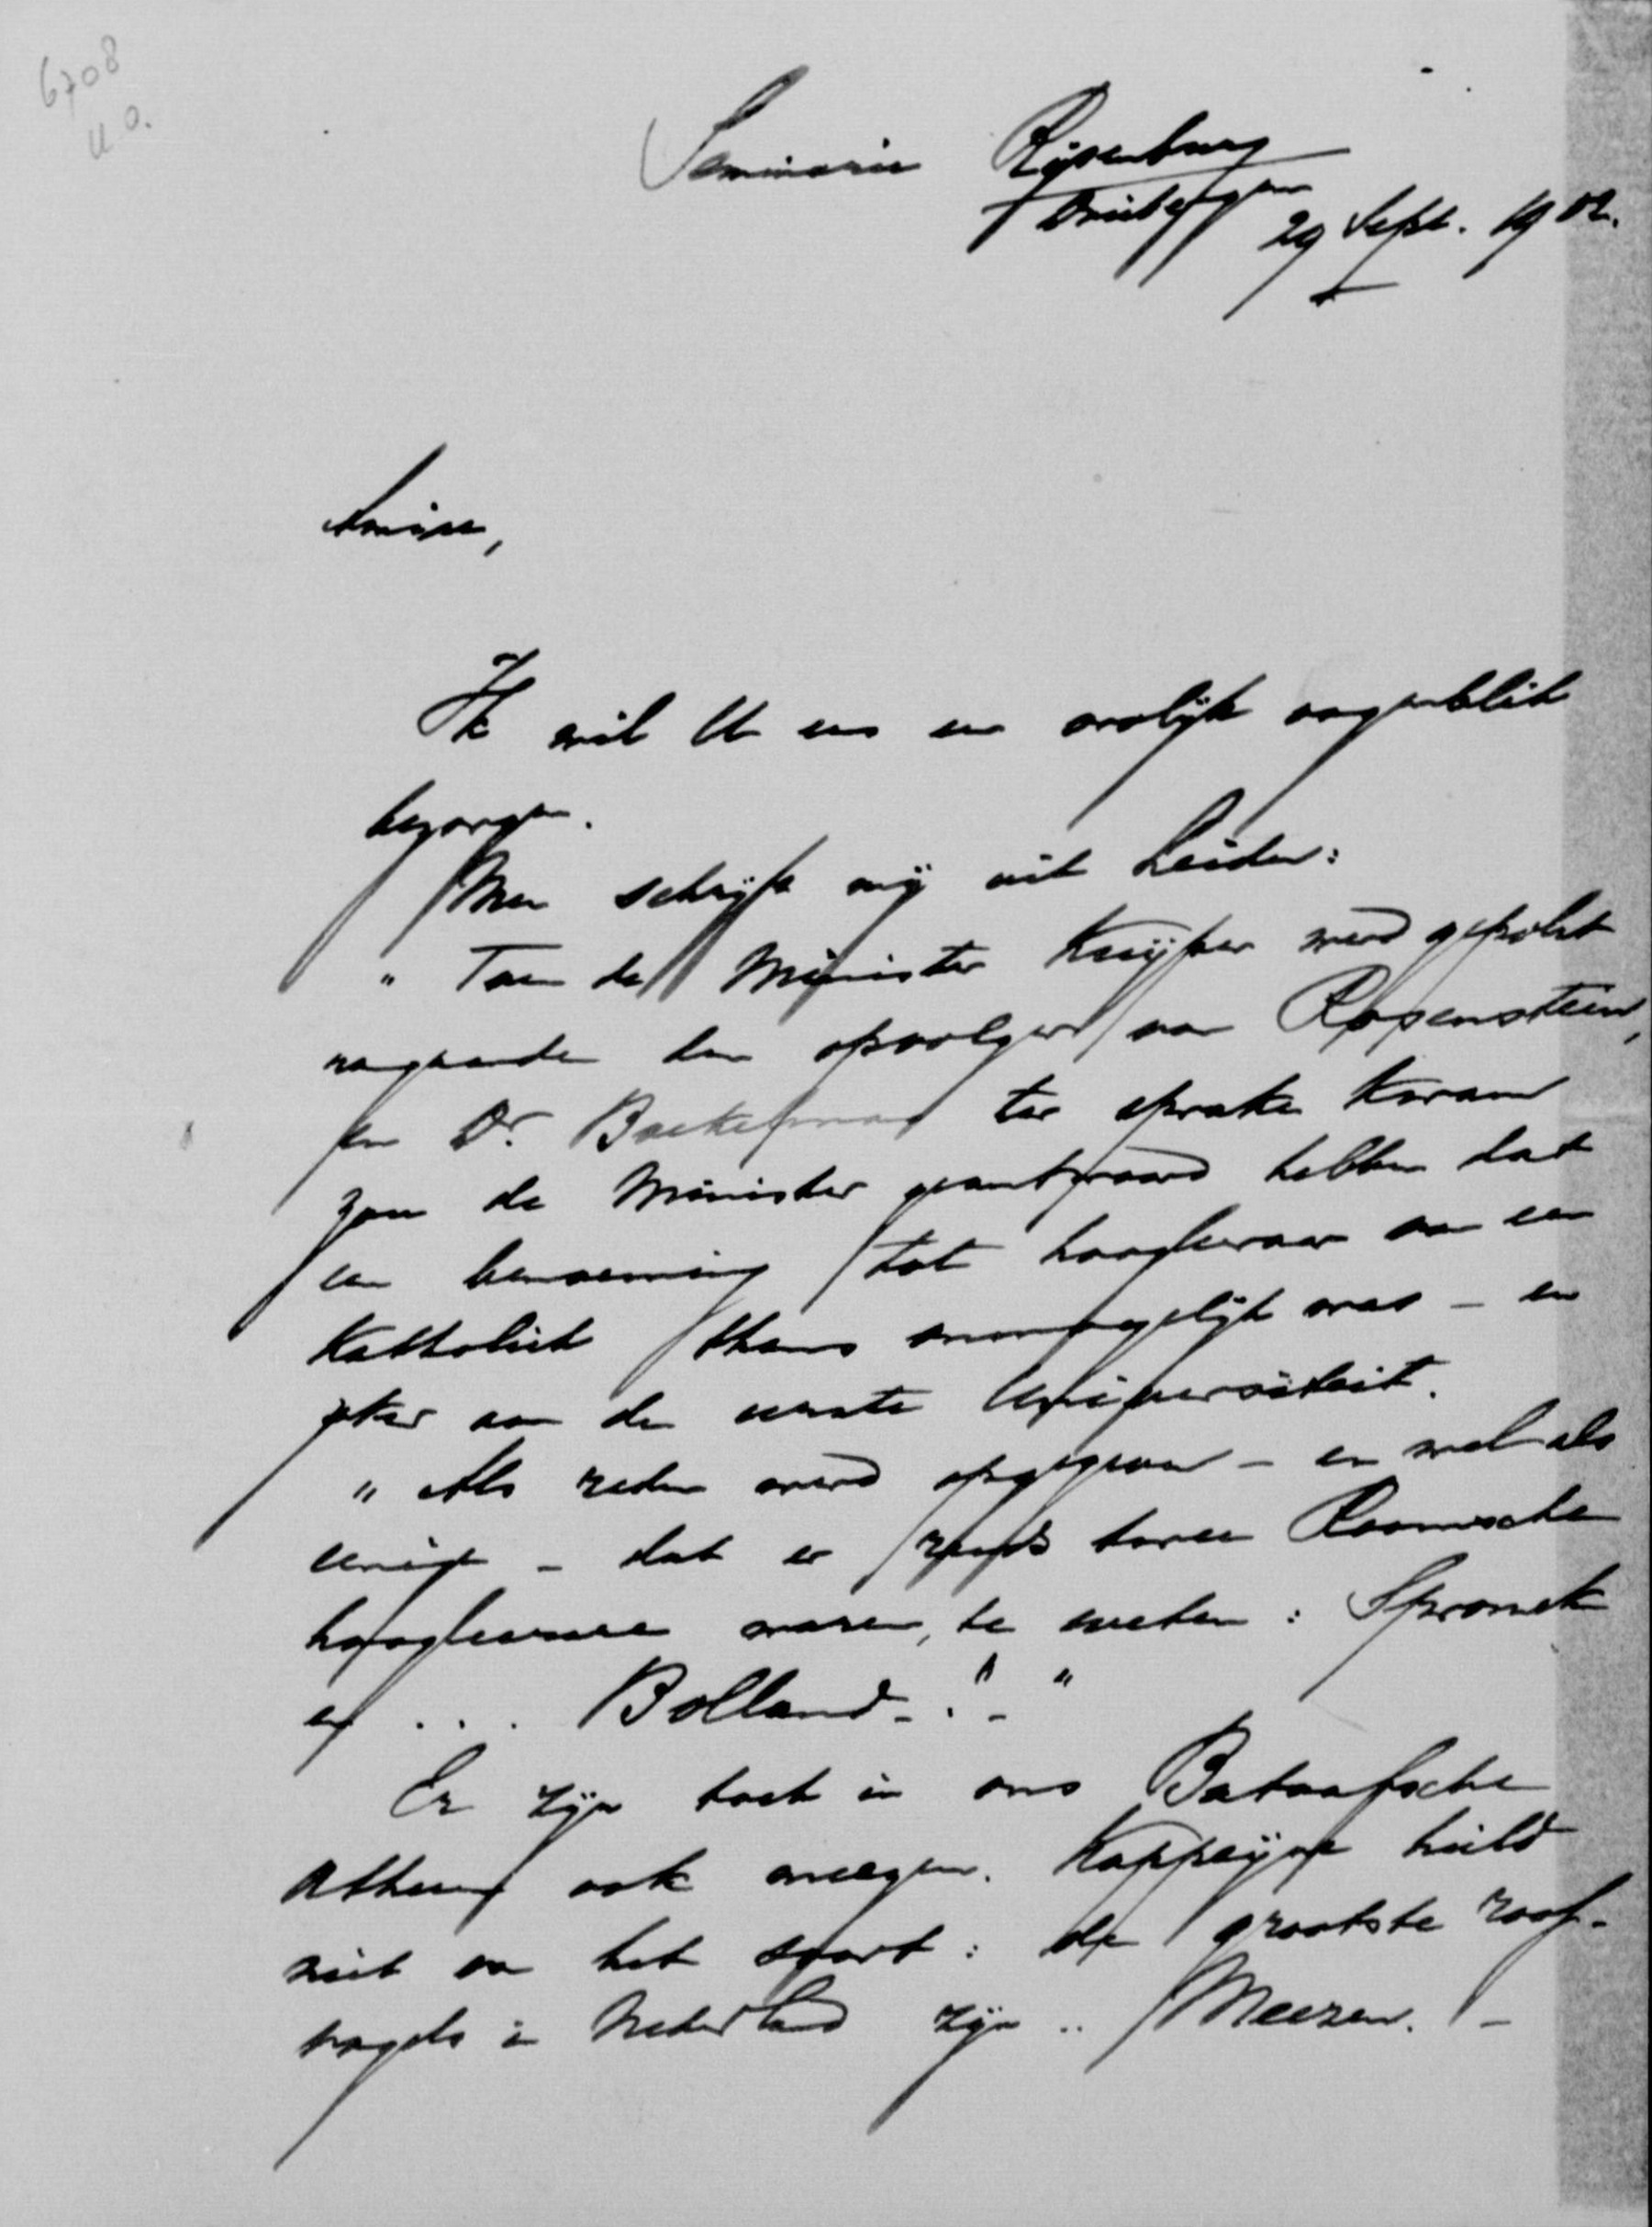 6708
u.o.
Seminarie Rijsenburg
Driebergen 29 Sept. 1902.
Amice,
Ik wil U eens een vrolijk oogenblik
bezorgen.
Men schrijft mij uit Leiden:
"Toen de Minister Kuijper werd gepolst
nopens den opvolger van Rosenstein,
en Dr. ter sprake kwam
zou de Minister geantwoord hebben dat
een benoeming tot hoogleeraar van een
Katholiek thans onmogelijk was – en
zeker aan de eerste Universiteit.
"Als reden werd opgegeven – en wel als
eenige – dat er reeds twee Roomsche
hoogleeraren waren, te weten: Spronck
en ... Bolland–!–"
Er zijn toch in ons Bataafsche
Athene ook Kappeijne hield
niet van het soort: de grootste roof-
vogels in Nederland zijn .. Meezen. –